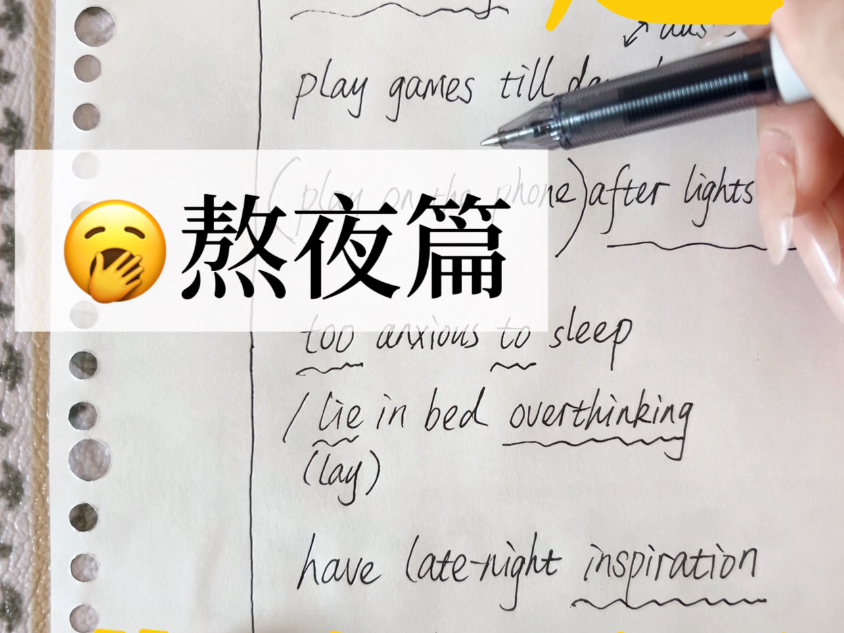 play games till
(play on the phone) after lights
🥱熬夜篇
too anxious to sleep
/ lie in bed overthinking
(lay)
have late-night inspiration